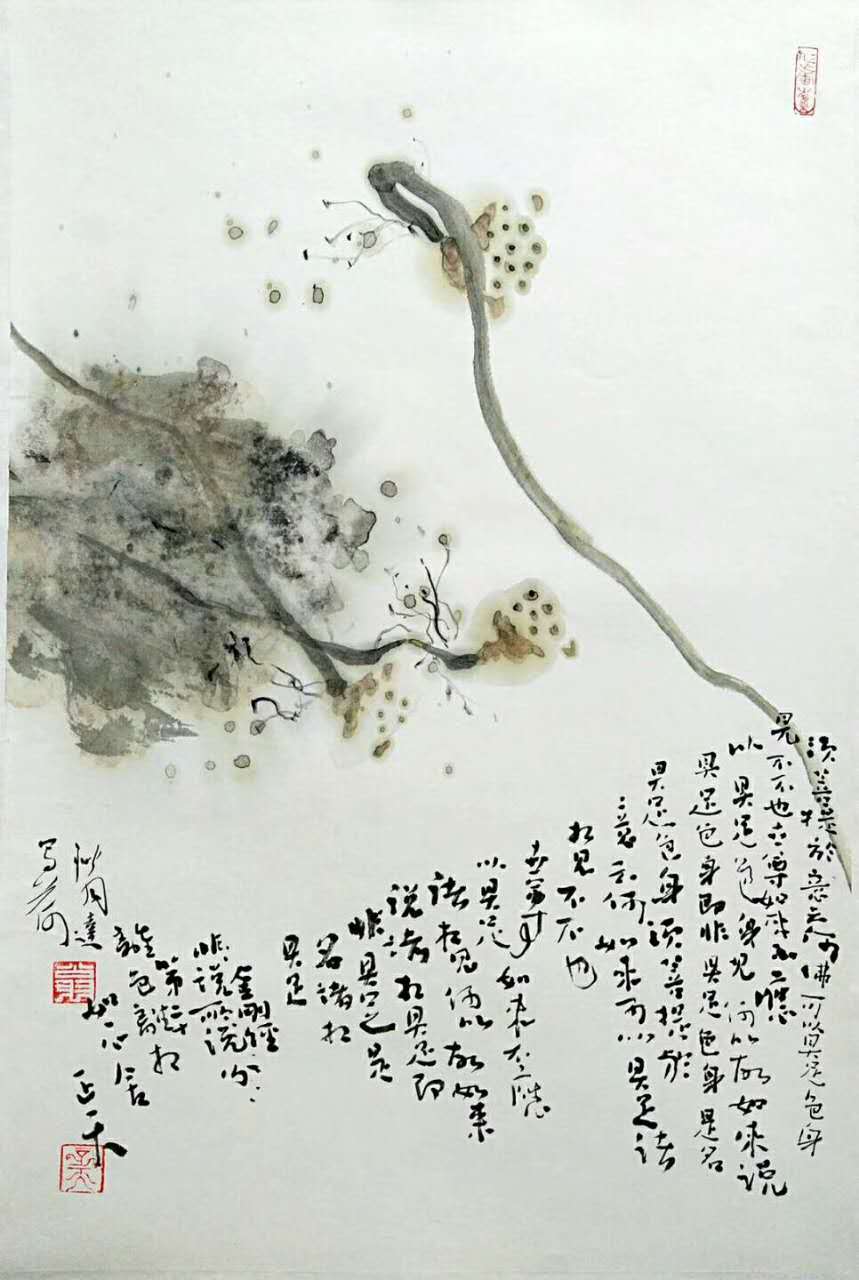 须菩提於意云何佛可以具足色身
見不不也世尊如来不應
以具足色身見何以故如来説
具足色身即非具足色身是名
具足色身须菩提於
意云何如来可以具足諸
相見不不也
世尊如来不應
以具足
諸相見何以故如来
説諸相具足即
非具足是
名諸相
具足
金剛經
非説所説分
第二十
離色離相
写荷